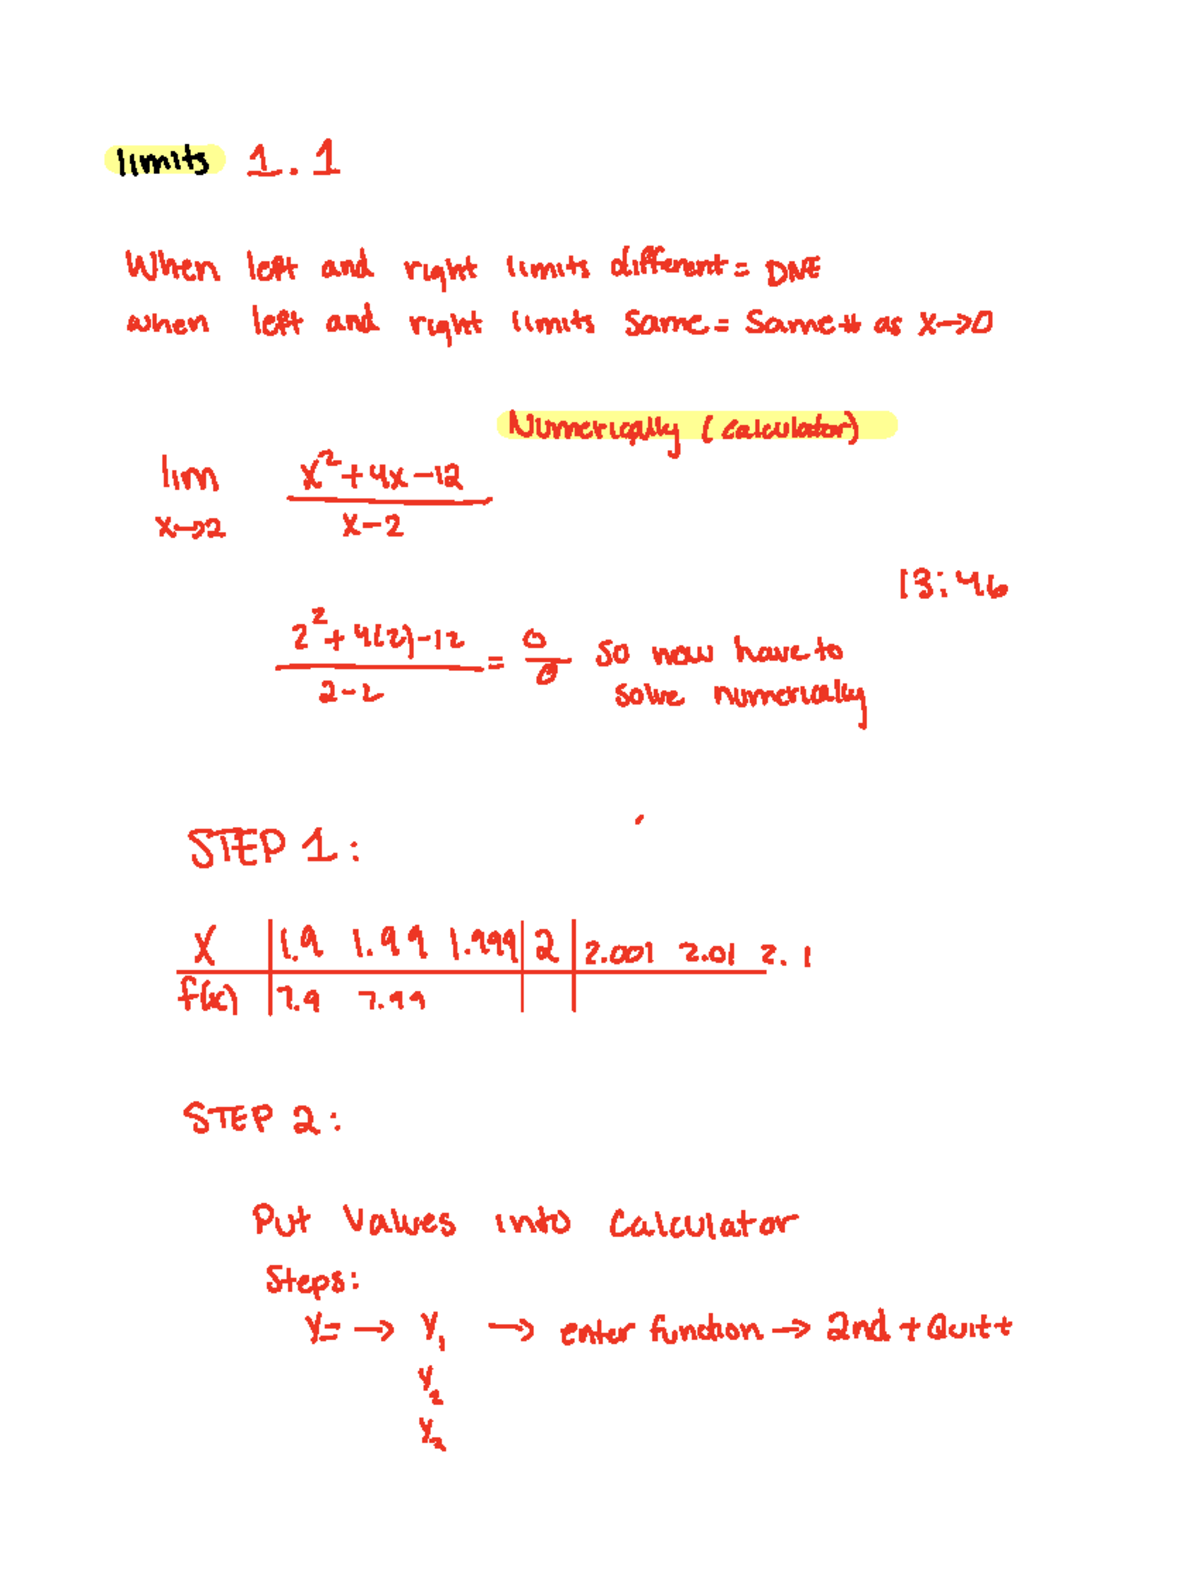 limits 1.1
When left and right limits different = DNE
when left and right limits same = same # as x→0
Numerically (calculator)
lim x→2 x²+4x-12 / x-2
13:46
2²+4(2)-12 / 2-2 = 0/0 so now have to
solve numerically
STEP 1:
x | 1.9 1.99 1.999 | 2 | 2.001 2.01 2.1
f(x) | 7.9 7.99
STEP 2:
Put Values into Calculator
Steps:
Y= → Y₁ → enter function → 2nd + Quit +
Y₂
Y₃